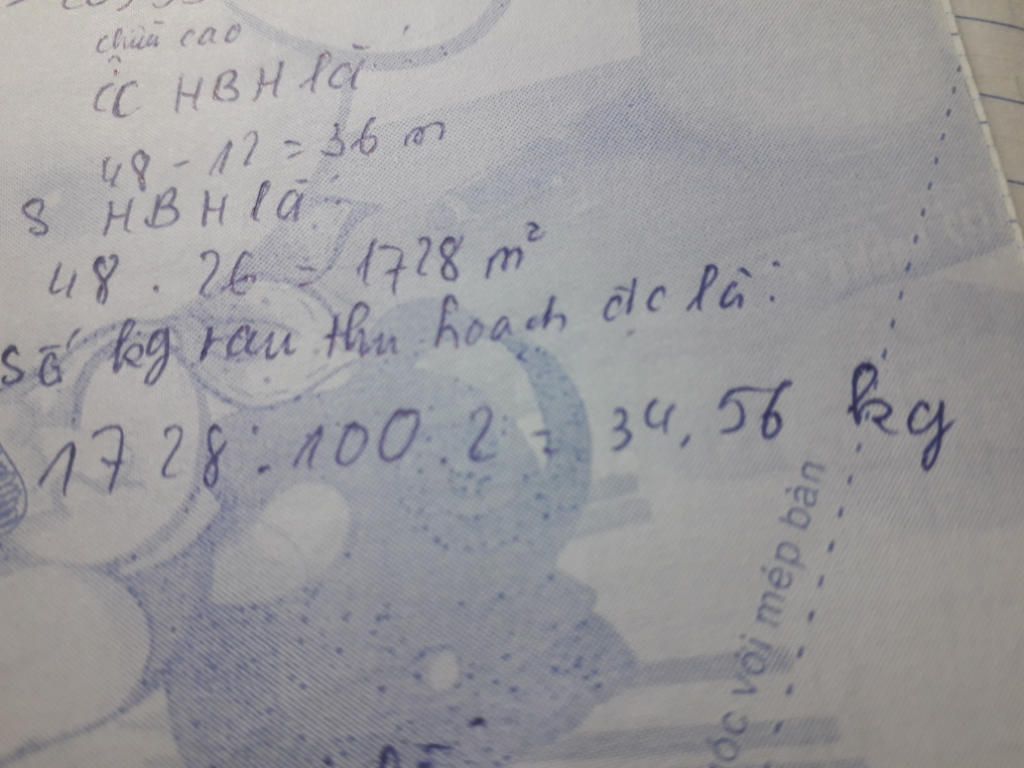 chiều cao
CC HBH là
48 - 12 = 36 m
S HBH là
48 . 26 = 1728 m²
Số kg rau thu hoạch đc là:
1728 : 100 . 2 = 34,56 kg
góc với mép bàn